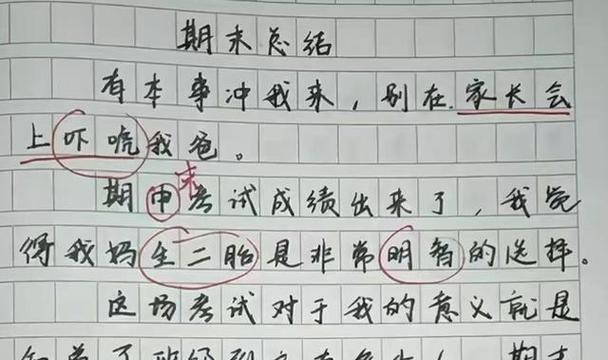 期末总结
有本事冲我来，别在家长会
上吓唬我爸。
末
期中考试成绩出来了，我觉
得我妈生二胎是非常明智的选择。
这场考试对于我的意义就是